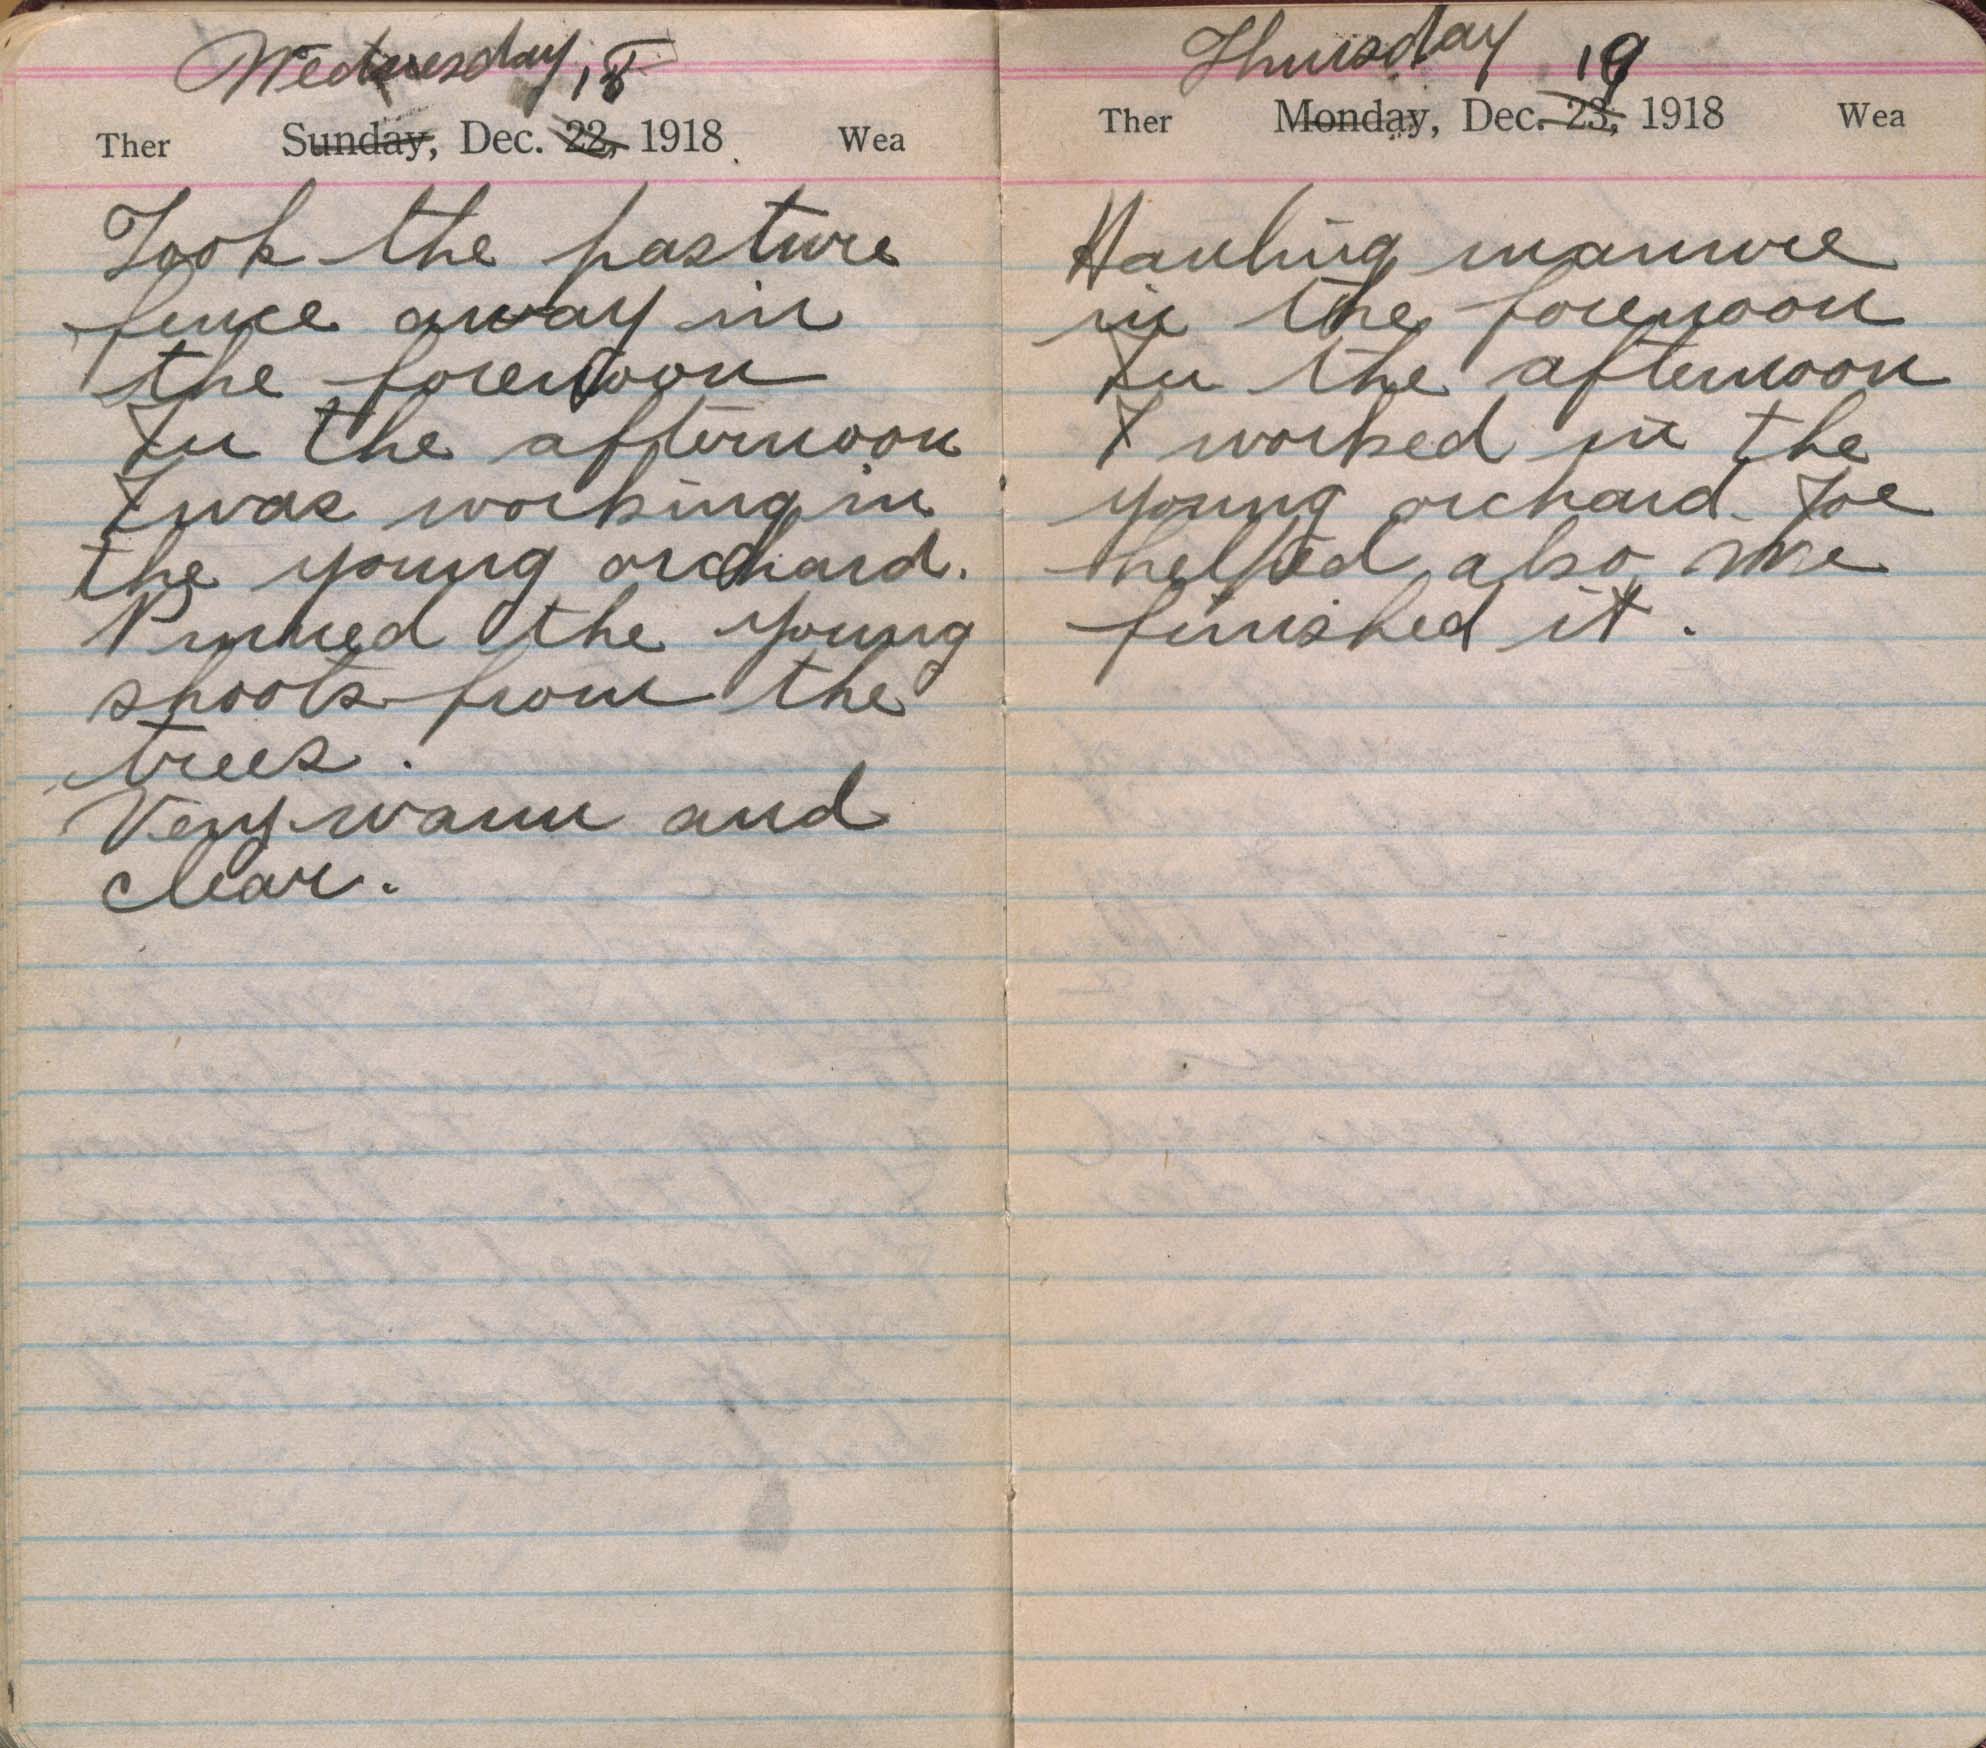 Wednesday 18
Ther Sunday, Dec. 22, 1918 Wea
Took the pasture
fence away in
the forenoon
In the afternoon
I was working in
the young orchard.
Pruned the young
shoots from the
trees.
Very warm and
clear.
Thursday 19
Ther Monday, Dec. 23, 1918 Wea
Hauling manure
in the forenoon
In the afternoon
I worked in the
young orchard. Joe
helped also. We
finished it.